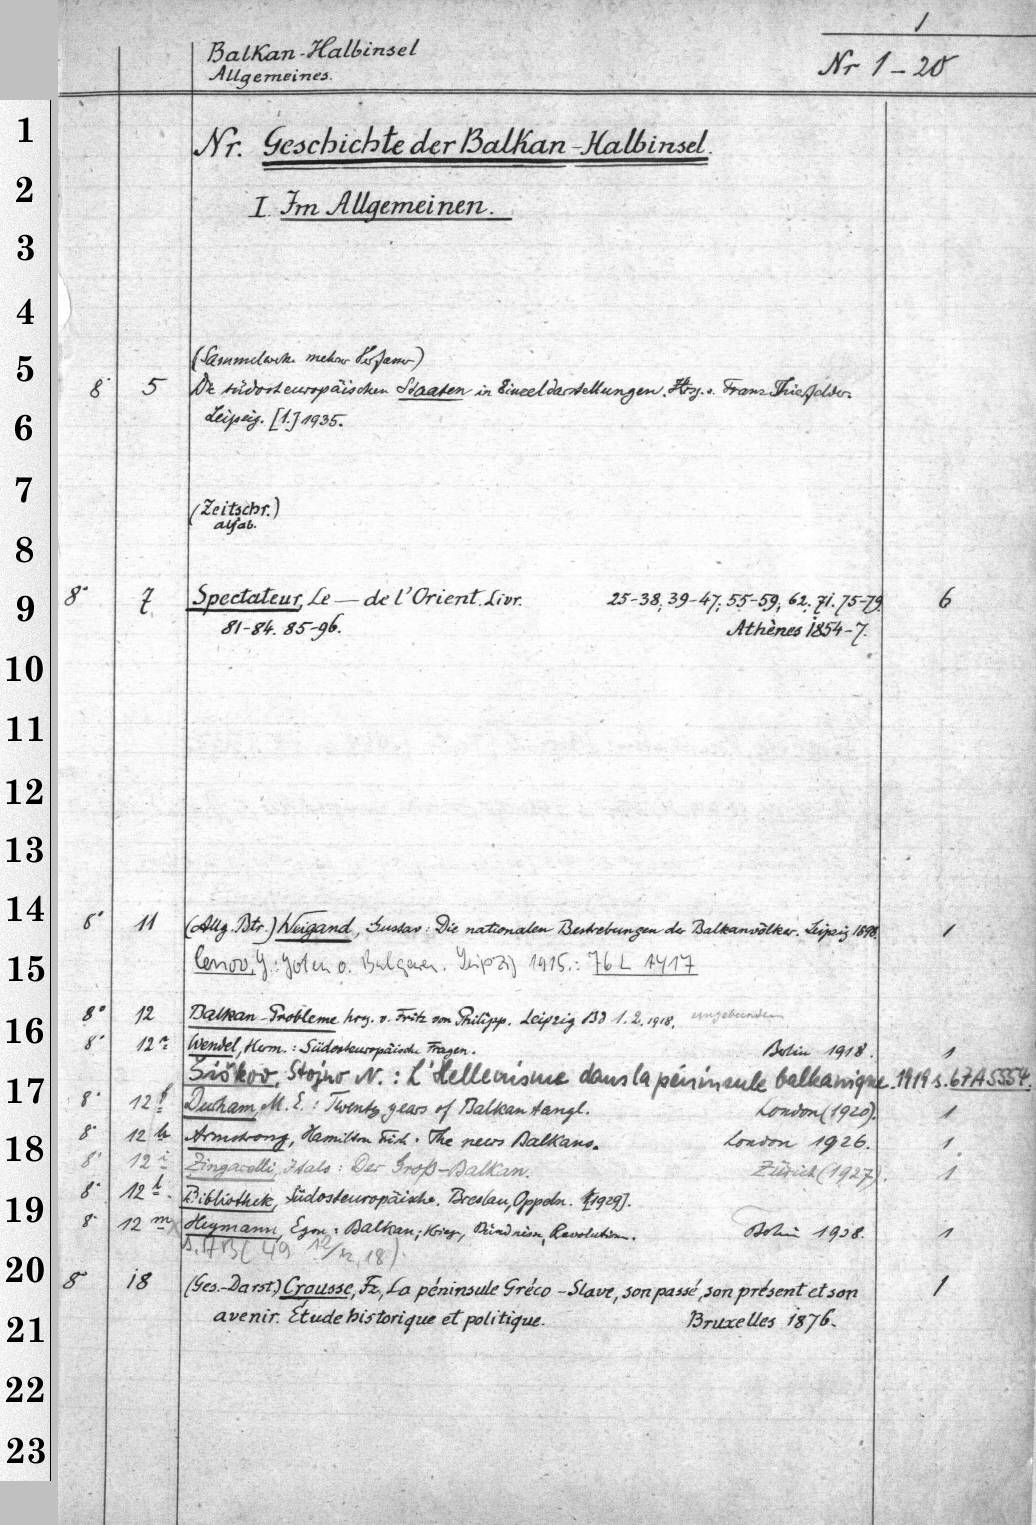 1
Balkan-Halbinsel
Allgemeines.
Nr 1-20
1
Nr. Geschichte der Balkan-Halbinsel.
2
I. Im Allgemeinen.
3
4
5
(Sammelwerke mehrer Verfasser)
8° 5 Die südosteuropäischen Staaten in Einzeldarstellungen. Hrsg. v. Franz Thierfelder.
6
Leipzig. [1.] 1935.
7
(Zeitschr.)
alfab.
8
9
8° 7 Spectateur, Le — de l'Orient. Livr. 25-38, 39-47; 55-59; 62. 71. 75-79. 6
81-84. 85-96. Athènes 1854-7.
10
11
12
13
14
8° 11 (Allg. Btr.) Weigand, Gustav: Die nationalen Bestrebungen der Balkanvölker. Leipzig 1898. 1
15
Cenov, G.: Goten o. Bulgaren. Leipzig 1915.: 76 L 1417
16
8° 12 Balkan-Probleme hrsg. v. Fritz von Philipp. Leipzig Bd 1. 2. 1918. ungebunden
8° 12 a: Wendel, Herm.: Südosteuropäische Fragen. Berlin 1918. 1
17
Šiškov, Stojno N.: L'Hellenisme dans la péninsule balkanique. 1919 s. 67 A 5554.
8° 12 f Durham, M. E.: Twenty years of Balkan tangl. London (1920). 1
18
8° 12 h Armstrong, Hamilton Fish: The new Balkans. London 1926. 1
8° 12 i Zingarelli, Italo: Der Groß-Balkan. Zürich (1927). 1
19
8° 12 l. Bibliothek, Südosteuropäische. Breslau, Oppeln. [1929].
8° 12 m Heymann, Egon: Balkan; Krieg, Bündnisse, Revolution. Berlin 1938. 1
20
8° 18 (Ges.-Darst) Crousse, Fz., La péninsule Gréco-Slave, son passé, son présent et son 1
21
avenir. Étude historique et politique. Bruxelles 1876.
22
23